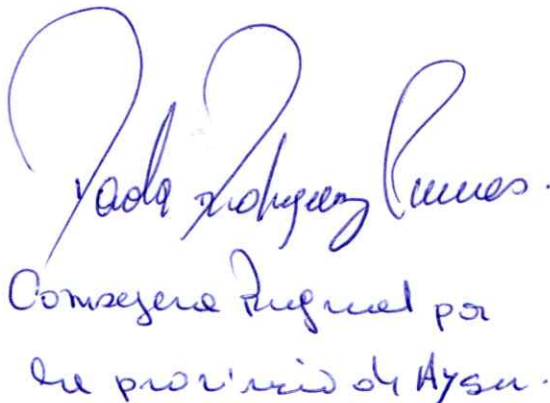 Paola Rodriguez
Consejera Regional por
la provincia de Aysen.